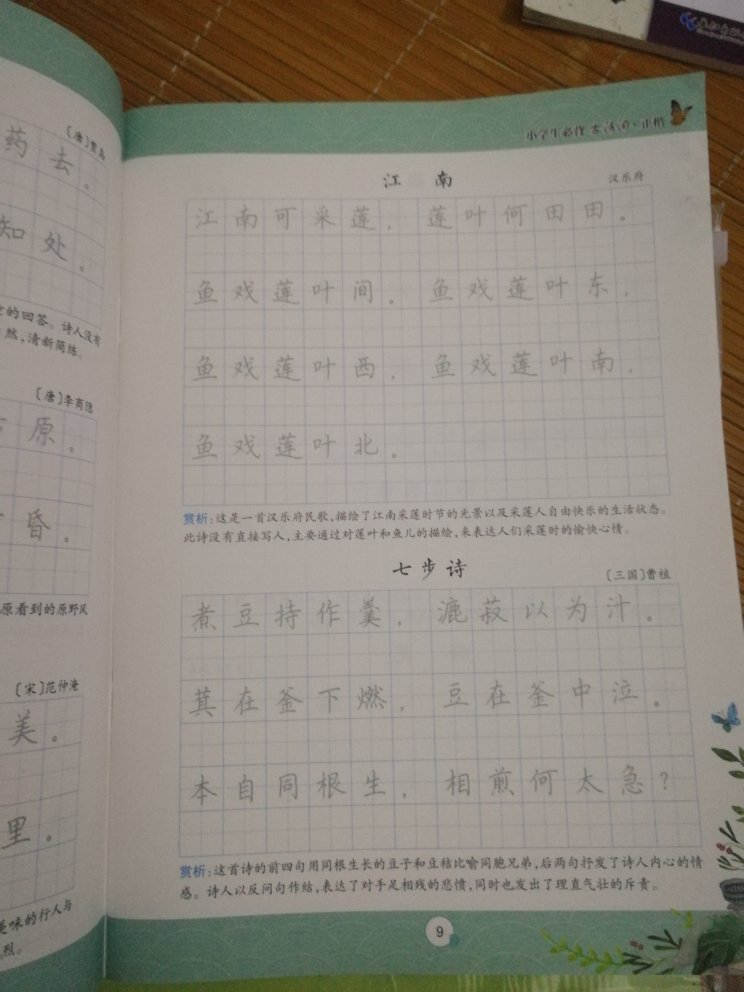 〔唐〕贾岛
药去。
知处。
的回答。诗人没有
然,清新简练。
〔唐〕李商隐
原。
昏。
原看到的原野风
〔宋〕范仲淹
美。
里。
美味的行人与
烈。
小学生必背古诗词·正楷
江南
汉乐府
江南可采莲,莲叶何田田。
鱼戏莲叶间。鱼戏莲叶东,
鱼戏莲叶西,鱼戏莲叶南,
鱼戏莲叶北。
赏析:这是一首汉乐府民歌,描绘了江南采莲时节的光景以及采莲人自由快乐的生活状态。
此诗没有直接写人,主要通过对莲叶和鱼儿的描绘,来表达人们采莲时的愉快心情。
七步诗
〔三国〕曹植
煮豆持作羹,漉菽以为汁。
萁在釜下燃,豆在釜中泣。
本自同根生,相煎何太急?
赏析:这首诗的前四句用同根生长的豆子和豆秸比喻同胞兄弟,后两句抒发了诗人内心的情
感。诗人以反问句作结,表达了对手足相残的悲愤,同时也发出了理直气壮的斥责。
9